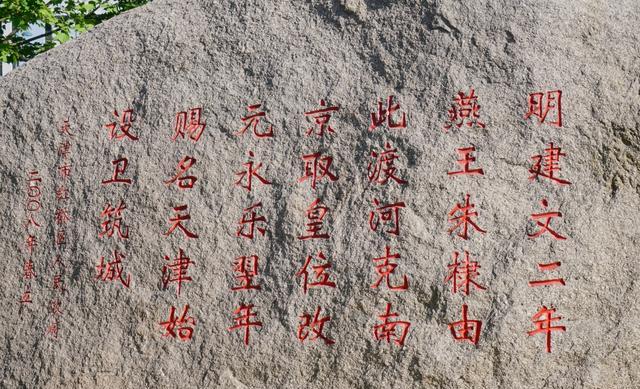 明建文二年
燕王朱棣由
此渡河克南
京取皇位改
元永乐翌年
赐名天津始
设卫筑城
天津市红桥区人民政府
二〇〇八年